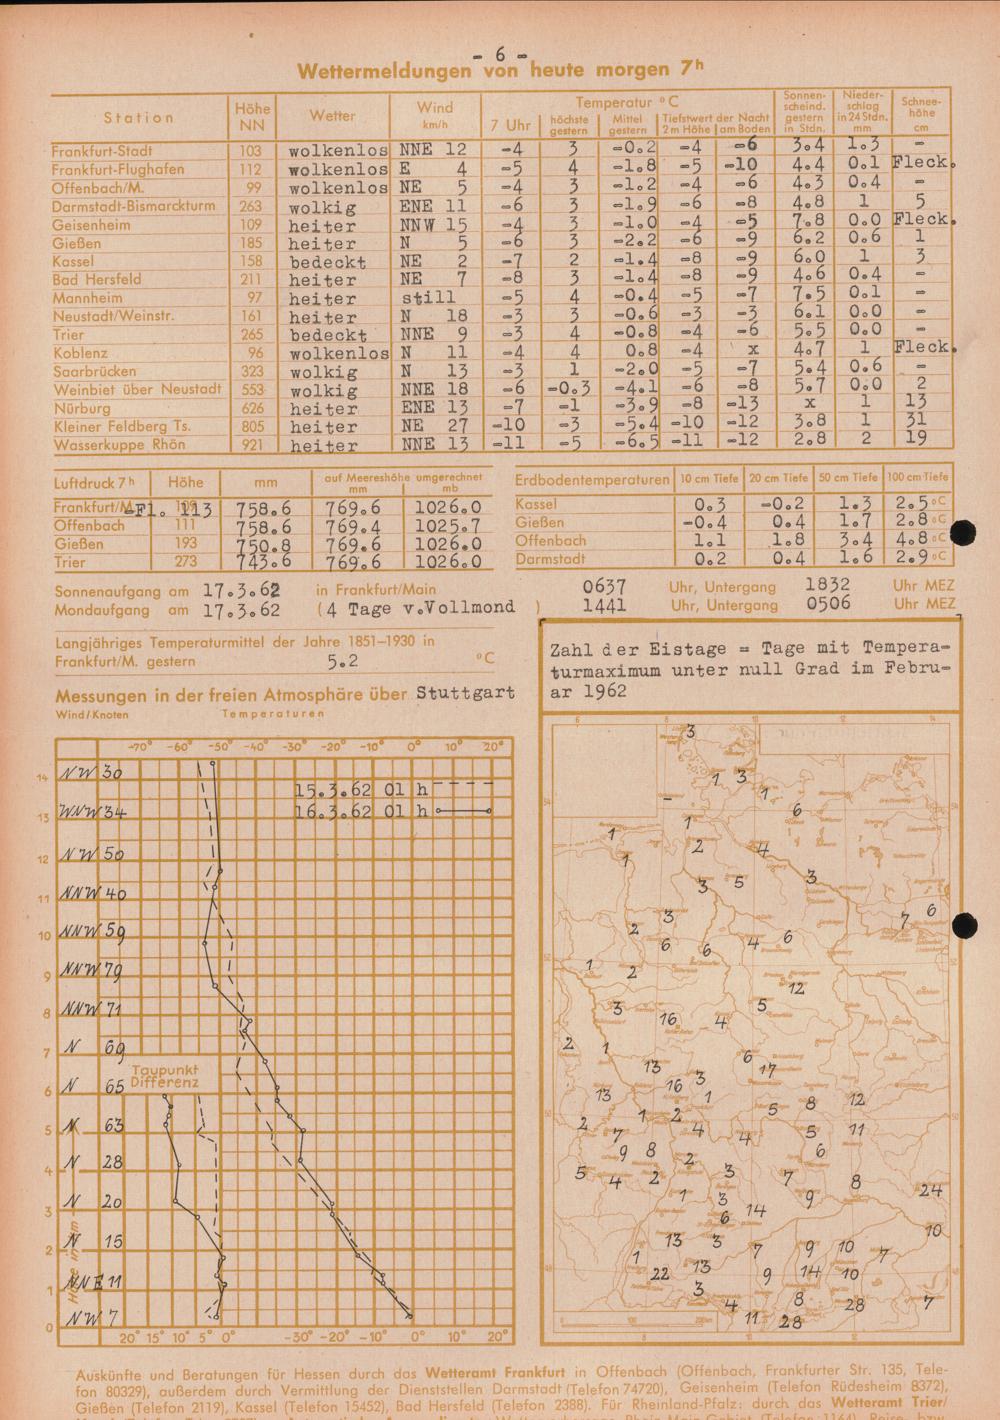 - 6 -
Wettermeldungen von heute morgen 7h
Station Höhe NN Wetter Wind km/h Temperatur °C 7 Uhr höchste gestern Mittel gestern Tiefstwert der Nacht 2m Höhe am Boden Sonnenscheind. gestern in Stdn. Niederschlag in 24 Stdn. mm Schneehöhe cm
Frankfurt-Stadt 103 wolkenlos NNE 12 -4 3 -0.2 -4 -6 3.4 1.3 -
Frankfurt-Flughafen 112 wolkenlos E 4 -5 4 -1.8 -5 -10 4.4 0.1 Fleck.
Offenbach/M. 99 wolkenlos NE 5 -4 3 -1.2 -4 -6 4.3 0.4 -
Darmstadt-Bismarckturm 263 wolkig ENE 11 -6 3 -1.9 -6 -8 4.8 1 5
Geisenheim 109 heiter NNW 15 -4 3 -1.0 -4 -5 7.8 0.0 Fleck.
Gießen 185 heiter N 5 -6 3 -2.2 -6 -9 6.2 0.6 1
Kassel 158 bedeckt NE 2 -7 2 -1.4 -8 -9 6.0 1 3
Bad Hersfeld 211 heiter NE 7 -8 3 -1.4 -8 -9 4.6 0.4 -
Mannheim 97 heiter still -5 4 -0.4 -5 -7 7.5 0.1 -
Neustadt/Weinstr. 161 heiter N 18 -3 3 -0.6 -3 -3 6.1 0.0 -
Trier 265 bedeckt NNE 9 -3 4 -0.8 -4 -6 5.5 0.0 -
Koblenz 96 wolkenlos N 11 -4 4 0.8 -4 x 4.7 1 Fleck.
Saarbrücken 323 wolkig N 13 -3 1 -2.0 -5 -7 5.4 0.6 -
Weinbiet über Neustadt 553 wolkig NNE 18 -6 -0.3 -4.1 -6 -8 5.7 0.0 2
Nürburg 626 heiter ENE 13 -7 -1 -3.9 -8 -13 x 1 13
Kleiner Feldberg Ts. 805 heiter NE 27 -10 -3 -5.4 -10 -12 3.8 1 31
Wasserkuppe Rhön 921 heiter NNE 13 -11 -5 -6.5 -11 -12 2.8 2 19
Luftdruck 7h Höhe mm auf Meereshöhe umgerechnet mm mb
Frankfurt/M.-Fl. 113 758.6 769.6 1026.0
Offenbach 111 758.6 769.4 1025.7
Gießen 193 750.8 769.6 1026.0
Trier 273 743.6 769.6 1026.0
Erdbodentemperaturen 10 cm Tiefe 20 cm Tiefe 50 cm Tiefe 100 cm Tiefe
Kassel 0.3 -0.2 1.3 2.5 °C
Gießen -0.4 0.4 1.7 2.8 °C
Offenbach 1.1 1.8 3.4 4.8 °C
Darmstadt 0.2 0.4 1.6 2.9 °C
Sonnenaufgang am 17.3.62 in Frankfurt/Main 0637 Uhr, Untergang 1832 Uhr MEZ
Mondaufgang am 17.3.62 (4 Tage v.Vollmond ) 1441 Uhr, Untergang 0506 Uhr MEZ
Langjähriges Temperaturmittel der Jahre 1851-1930 in
Frankfurt/M. gestern 5.2 °C
Zahl der Eistage = Tage mit Tempera-
turmaximum unter null Grad im Febru-
ar 1962
Messungen in der freien Atmosphäre über Stuttgart
Wind/Knoten Temperaturen
-70° -60° -50° -40° -30° -20° -10° 0° 10° 20°
14 NW 30
15.3.62 01 h
13 WNW 34 16.3.62 01 h
12 NW 50
11 NNW 40
10 NNW 59
9 NNW 79
8 NNW 71
7 N 69
Taupunkt
Differenz
6 N 65
5 N 63
4 N 28
3 N 20
2 N 15
1 NNE 11
0 NW 7
Höhe in km
20° 15° 10° 5° 0° -30° -20° -10° 0° 10° 20°
6 8 10 12 14
3
1 3
1
- 6
1 1
2 4
1
3 5 3
6
3 7
2
6 6 4 6
1 2
12
3 5
16 4
2 1
6
13 17
16 3
13 1 8 12
5
1 2
2 7 4 4 5 11
9 8 6
2
5 4 2 3 7 8
1 3 9 24
6 14
10
13 3
1 7 9 10 7
22 13 9 14 10
3
4 8 28 7
11 28
Auskünfte und Beratungen für Hessen durch das Wetteramt Frankfurt in Offenbach (Offenbach, Frankfurter Str. 135, Tele-
fon 80329), außerdem durch Vermittlung der Dienststellen Darmstadt (Telefon 74720), Geisenheim (Telefon Rüdesheim 8372),
Gießen (Telefon 2119), Kassel (Telefon 15452), Bad Hersfeld (Telefon 2388). Für Rheinland-Pfalz: durch das Wetteramt Trier/